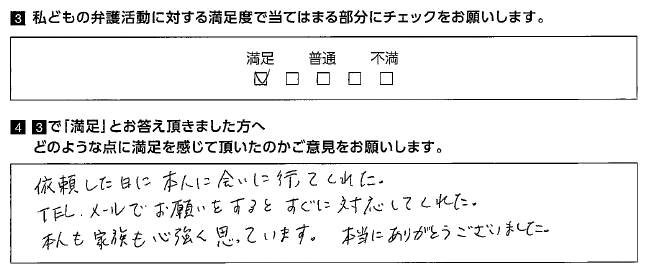 3 私どもの弁護活動に対する満足度で当てはまる部分にチェックをお願いします。
満足 普通 不満
☑ □ □ □ □
4 3で「満足」とお答え頂きました方へ
どのような点に満足を感じて頂いたのかご意見をお願いします。
依頼した日に本人に会いに行ってくれた。
TEL.メールでお願いをするとすぐに対応してくれた。
本人も家族も心強く思っています。 本当にありがとうございました。